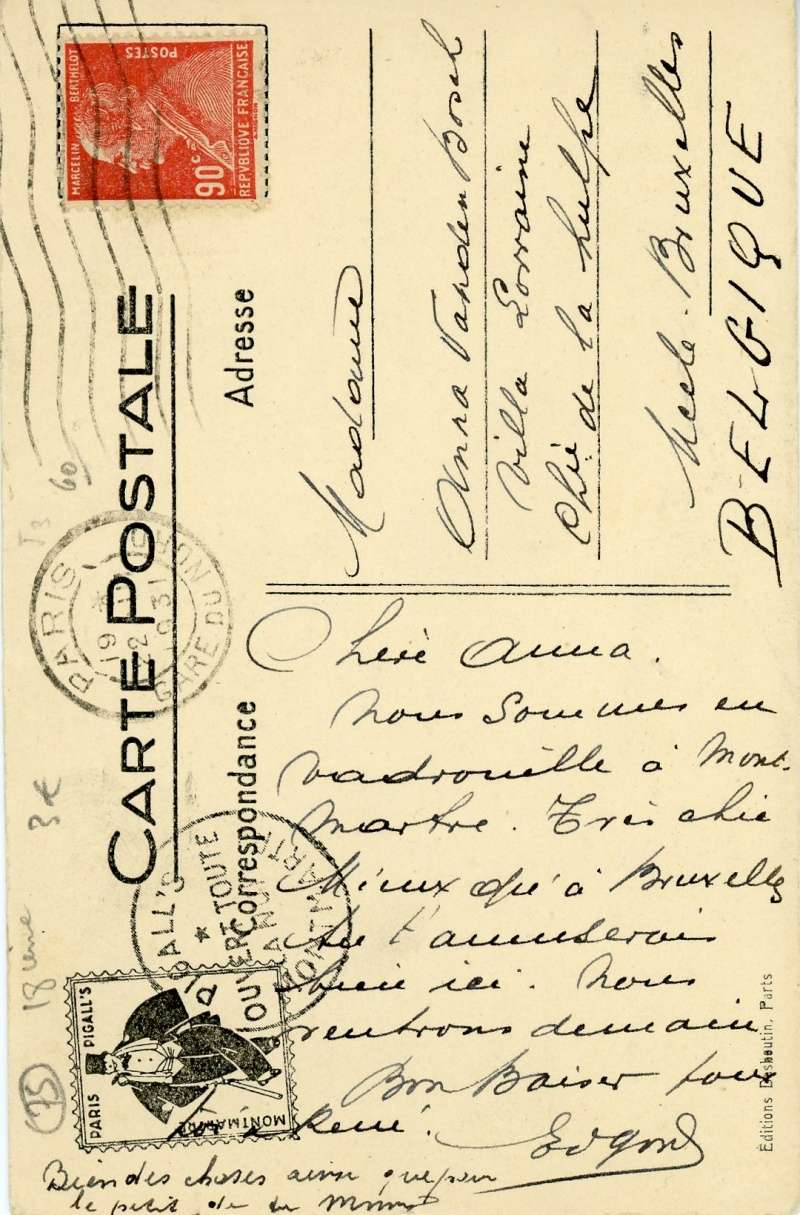 CARTE POSTALE
Correspondance
Adresse
MARCELIN BERTHELOT
POSTES
90c
REPVBLIQVE FRANÇAISE
PARIS
GARE DU NORD
19
2
1931
T3
60
3€
18ième
75
PIGALL'S
OUVERT TOUTE
LA NUIT
MONTMARTRE
PARIS PIGALL'S
MONTMARTRE
Chère Anna.
Nous sommes en
vadrouille à Mont-
martre. Très chic
Mieux qu'à Bruxelles
tu t'amuserais
bien ici. Nous
rentrons demain
Bon Baiser pour
René.
Bien des choses ainsi que pour
le petit de
Madame
Anna Vanden Bosch
Villa Lorraine
Chée de la hulpe
Uccle-Bruxelles
BELGIQUE
Éditions Desboutin, Paris